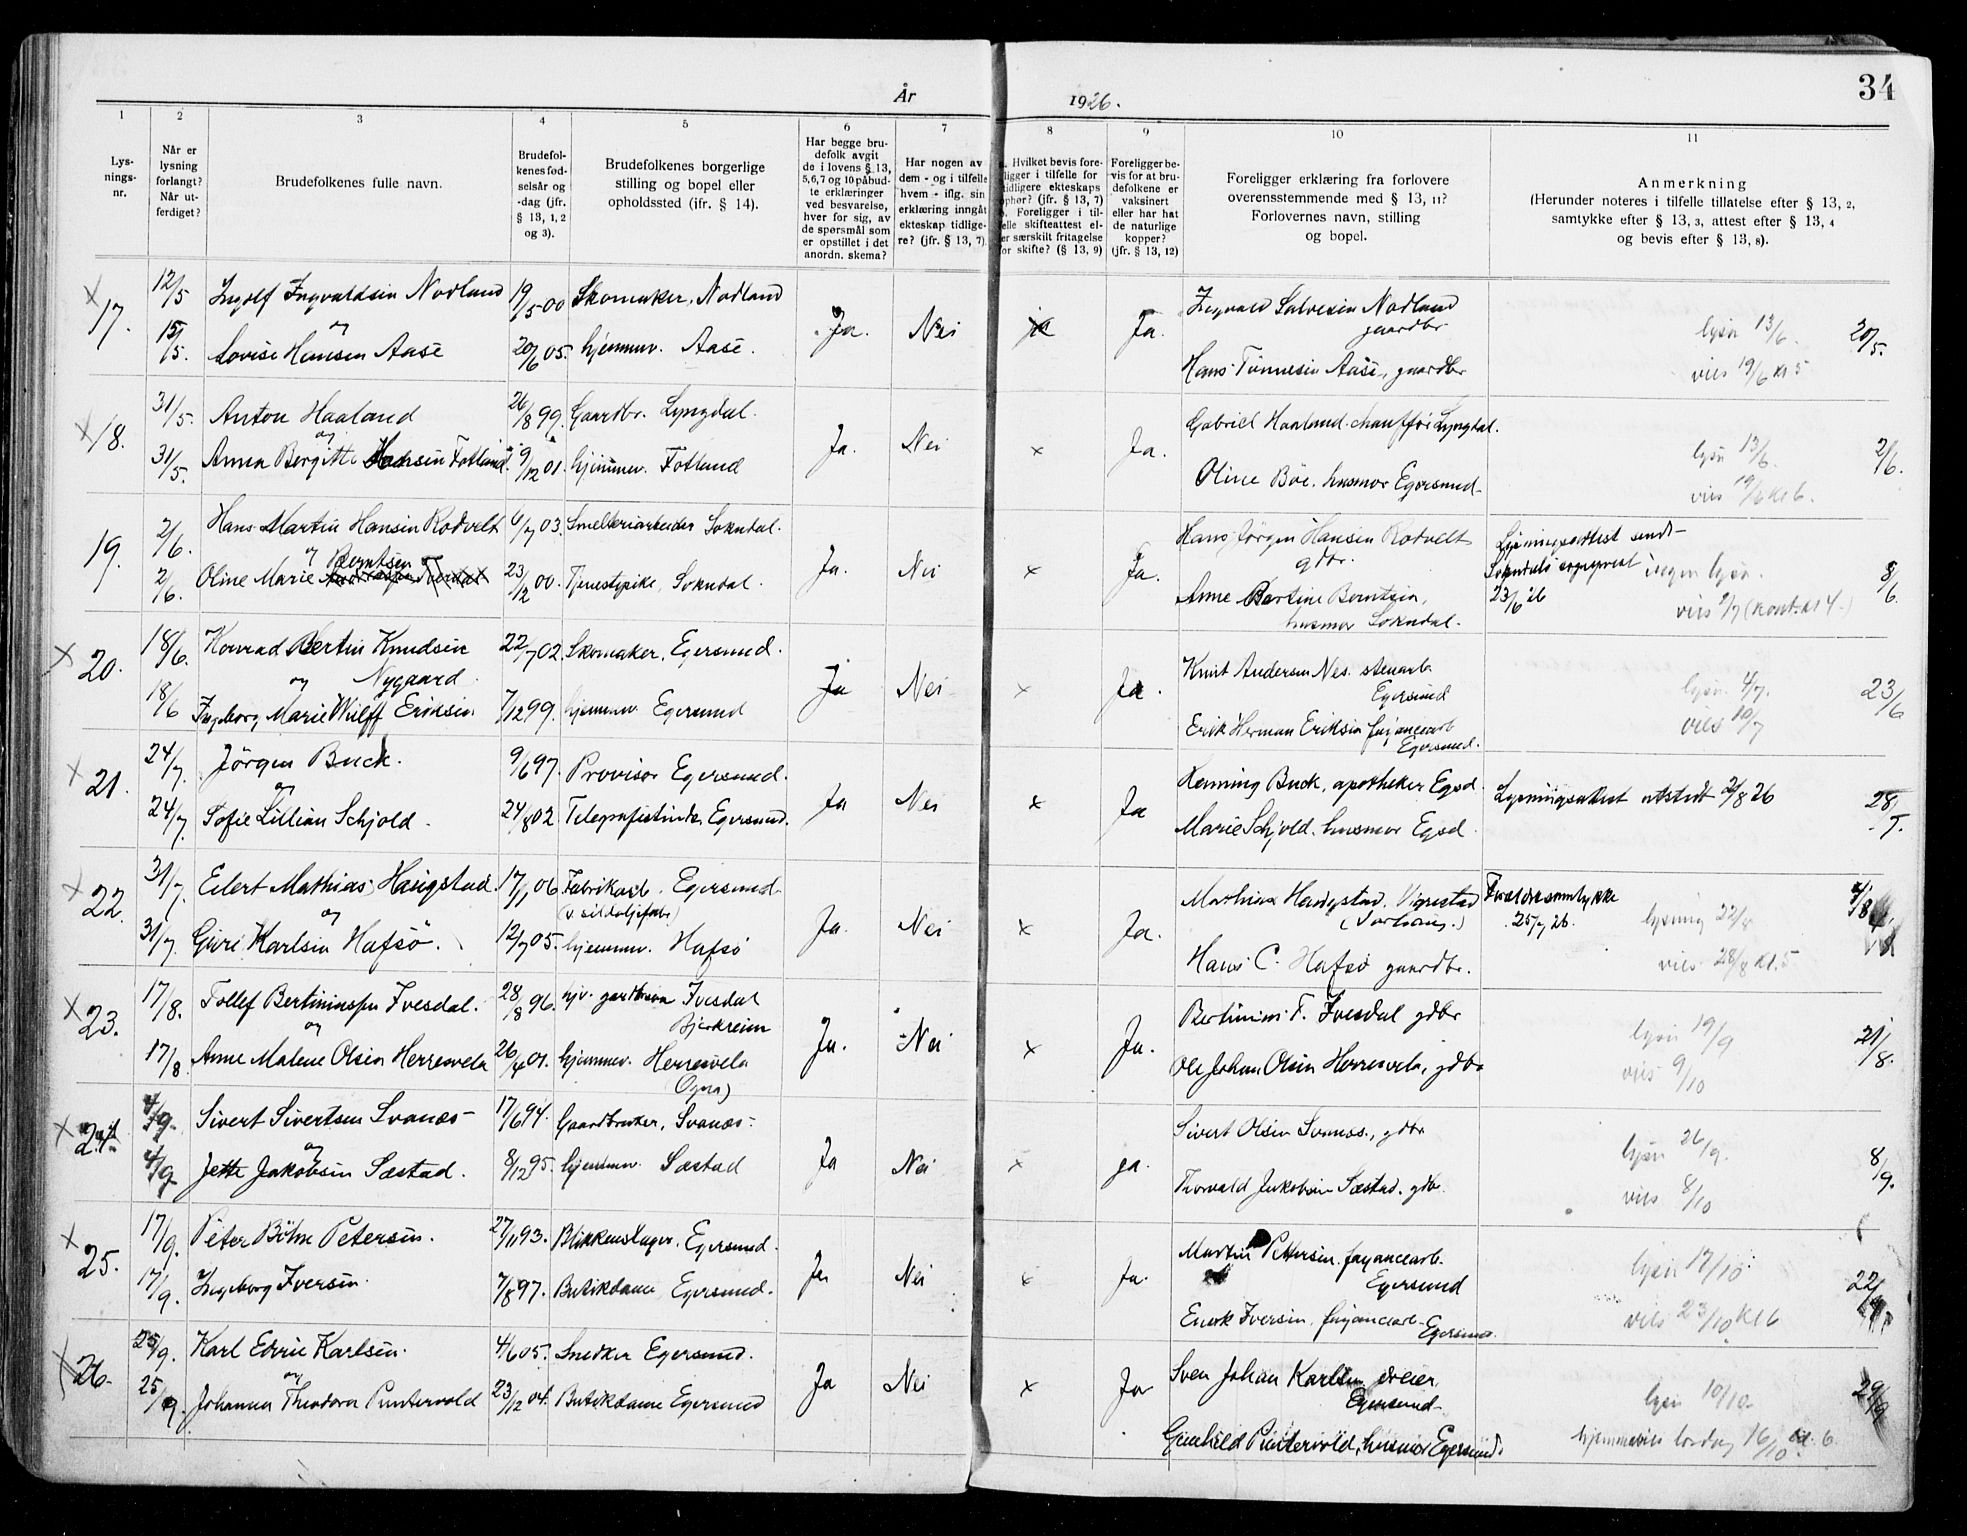 34
År 1926.
1 2 3 4 5 6 7 8 9 10 11
Lys-
nings-
nr.
Når er
lysning
forlangt?
Når ut-
ferdiget?
Brudefolkenes fulle navn.
Brudefol-
kenes fød-
selsår og
-dag (jfr.
§ 13, 1, 2
og 3).
Brudefolkenes borgerlige
stilling og bopel eller
opholdssted (ifr. § 14).
Har begge bru-
defolk avgit
de i lovens § 13,
5,6,7 og 10 påbud-
te erklæringer
ved besvarelse,
hver for sig, av
de spørsmål som
er opstillet i det
anordn. skema?
Har nogen av
dem - og i tilfelle
hvem - iflg. sin
erklæring inngåt
ekteskap tidlige-
re? (jfr. § 13, 7).
Hvilket bevis fore-
ligger i tilfelle for
tidligere ekteskaps
ophør? (jfr. § 13, 7)
Foreligger i til-
felle skifteattest el-
ler særskilt fritagelse
for skifte? (§ 13, 9)
Foreligger be-
vis for at bru-
defolkene er
vaksinert
eller har hat
de naturlige
kopper?
(jfr. § 13, 12)
Foreligger erklæring fra forlovere
overensstemmende med § 13, 11?
Forlovernes navn, stilling
og bopel.
Anmerkning
(Herunder noteres i tilfelle tillatelse efter § 13, 2,
samtykke efter § 13, 3, attest efter § 13, 4
og bevis efter § 13, 8).
x 17. 12/5 Ingolf Ingvaldsen Nodland 19/5 00 Skomaker, Nodland Ja. Nei Ja. Ingvald Salvesen Nodland
gaardbr
og
15/5. Lovise Hansen Aase 20/6 05. hjemmev. Aase. Hans Tønnesen Aase, gaardbr
lysn 13/6. 20/5.
vies 19/6 kl 5
x 18. 31/5. Anton Haaland 26/8 99. Gaardbr. Lyngdal. Ja. Nei x Ja. Gabriel Haaland. chauffør Lyngdal.
og
31/5. Anna Bergitte Hansen Fotland. 9/12 01. hjemmev. Fotland Oline Bøe. husmor Egersund
lysn 13/6. 2/6.
vies 19/6 kl 6.
19. 2/6. Hans Martin Hansen Rodvelt 6/7 03. Smelteriarbeider Sokndal. Ja. Nei x Ja. Hans Jørgen Hansen Rodvelt
gdbr.
og Berntsen
2/6. Oline Marie 23/12 00. Tjenestepike, Sokndal. Anne Bertine Berntsen,
husmor Sokndal.
Lysningsattest sendt
Sokndals sogneprest
23/6 26
ingen lysn. 8/6.
vies 2/7 (kont. kl 4.)
x 20. 18/6. Konrad Bertin Knudsen 22/7 02. Skomaker, Egersund. Ja Nei x Ja. Knut Andersen Nes. stenarb.
Egersund
og Nygaard.
18/6 Ingeborg Marie Wulff Eriksen 7/12 99. hjemmev. Egersund Erik Herman Eriksen fajancearb
Egersund.
lysn. 4/7. 23/6
vies 10/7
x 21. 24/7. Jörgen Buck. 9/6 97. Provisor Egersund. Ja Nei x Ja Henning Buck, apotheker Egsd.
og
24/7. Sofie Lillian Schjold. 24/8 02. Telegrafistinde, Egersund. Marie Schjold. husmor Egsd.
Lysningsattest utstedt 2/8 26 28/7.
x 22. 31/7. Eilert Mathias Haugstad 17/1 06 Fabrikarb. Egersund.
(v. sildoljefabr) Ja. Nei x Ja. Mathias Haugstad. Vigrestad
og
31/7. Guri Karlsen Hafsö. 12/7 05. hjemmev. Hafsö Hans C. Hafsö gaardbr.
Forældresamtykke
25/7 26.
lysning 22/8 4/8
vies 28/8 kl. 5
x 23. 17/8. Tollef Bertiniussen Ivesdal. 28/8 96. hjv. gardbrsøn Ivesdal
Bjerkreim Ja. Nei x Ja. Bertinius T. Ivesdal gdbr
og
17/8 Anne Malene Olsen Herresvela 26/4 01. hjemmev. Herresvela
(Ogna) Ole Johan Olsen Herresvela, gdbr
lysn 19/9 21/8.
vies 9/10
x 24. 4/9. Sivert Sivertsen Svanes 17/6 94. Gaardbruker, Svanes Ja Nei x ja. Sivert Olsen Svanes., gdbr
og
4/9. Jette Jakobsen Sæstad. 8/12 95. hjemmev. Sæstad Thorvald Jakobsen Sæstad. gdbr.
lysn 26/9. 8/9.
vies 8/10
x 25. 17/9. Peter Böhn Petersen. 27/11 93. Blikkenslager. Egersund. Ja Nei x Ja. Martin Pettersen. fayancearb.
Egersund
17/9. Ingeborg Iversen. 7/8 97. Butikdame Egersund. Enok Iversen. fayancearb.
Egersund.
lysn 17/10 22/9
vies 23/10 kl 6
x 26. 25/9. Karl Edvin Karlsen. 4/6 05. Snedker Egersund. Ja Nei x Ja Sven Johan Karlsen dreier
Egersund
og
25/9. Johanna Theodora Puntervold 23/12 04. Butikdame Egersund Gunhild Puntervold, husmor Egersund.
lysn 10/10. 29/9
hjemmevies lørdag 16/10 kl. 6.